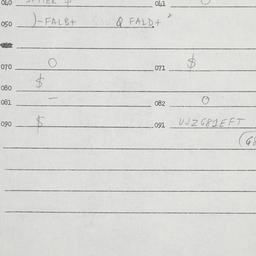 040 041
050 )-FALB+ & FALD+
070 O 071 $
080 $
081 - 082 O
090 $ 091 UJZG81EFT